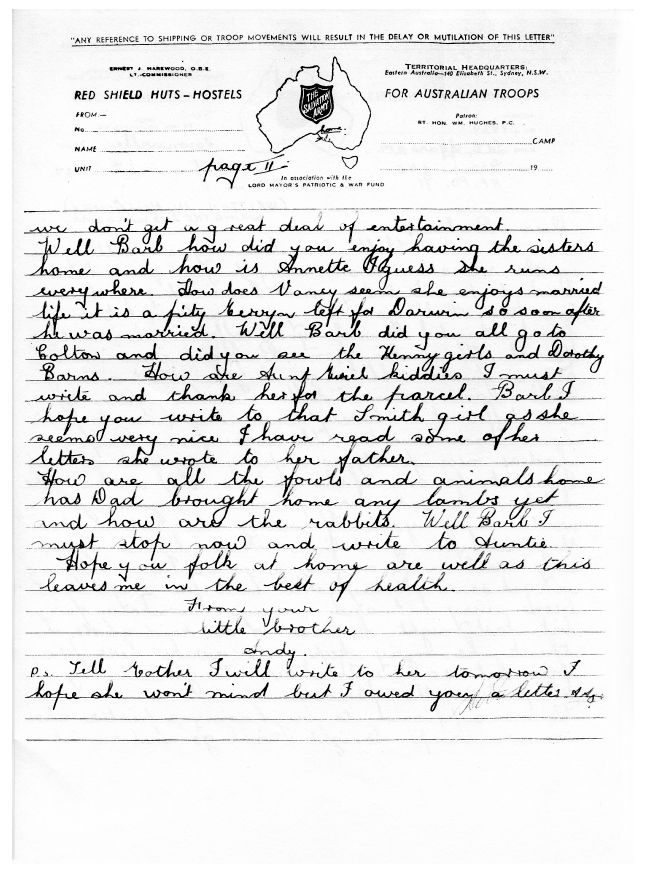 "ANY REFERENCE TO SHIPPING OR TROOP MOVEMENTS WILL RESULT IN THE DELAY OR MUTILATION OF THIS LETTER"
ERNEST J. HAREWOOD, O.B.E.
LT.-COMMISSIONER
TERRITORIAL HEADQUARTERS:
Eastern Australia—140 Elizabeth St., Sydney, N.S.W.
RED SHIELD HUTS - HOSTELS
THE SALVATION ARMY
FOR AUSTRALIAN TROOPS
FROM—
Patron:
RT. HON. WM. HUGHES, P.C.
No.
NAME
CAMP
UNIT
page II
19
In association with the
LORD MAYOR'S PATRIOTIC & WAR FUND
we don't get a great deal of entertainment
Well Barb how did you enjoy having the sisters
home and how is Annette I guess she runs
everywhere. How does Vancy seem she enjoys married
life it is a pity Merryn left for Darwin so soon after
he was married. Well Barb did you all go to
Colton and did you see the Kenny girls and Dorothy
Barns. How are Aunt Muriel kiddies I must
write and thank her for the parcel. Barb I
hope you write to that Smith girl as she
seems very nice I have read some of her
letters she wrote to her father.
How are all the fowls and animals home
has Dad brought home any lambs yet
and how are the rabbits. Well Barb I
must stop now and write to Auntie.
Hope you folk at home are well as this
leaves me in the best of health.
From your
little brother
Andy.
Ps. Tell Mother I will write to her tomorrow I
hope she won't mind but I owed you a letter